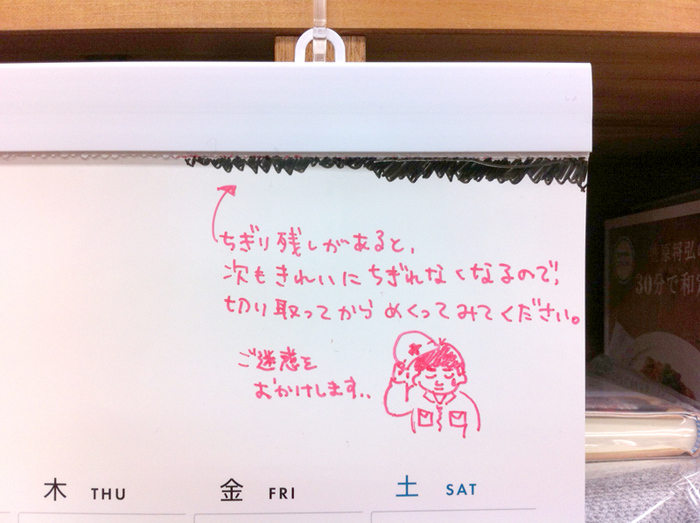 ちぎり残しがあると、
次もきれいにちぎれなくなるので、
切り取ってからめくってみてください。
ご迷惑を
おかけします..
木 THU
金 FRI
土 SAT
原将弘
30分で和